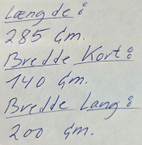 Længde:
285 Gm.
Bredde Kort:
140 Gm.
Bredde Lang:
200 Gm.